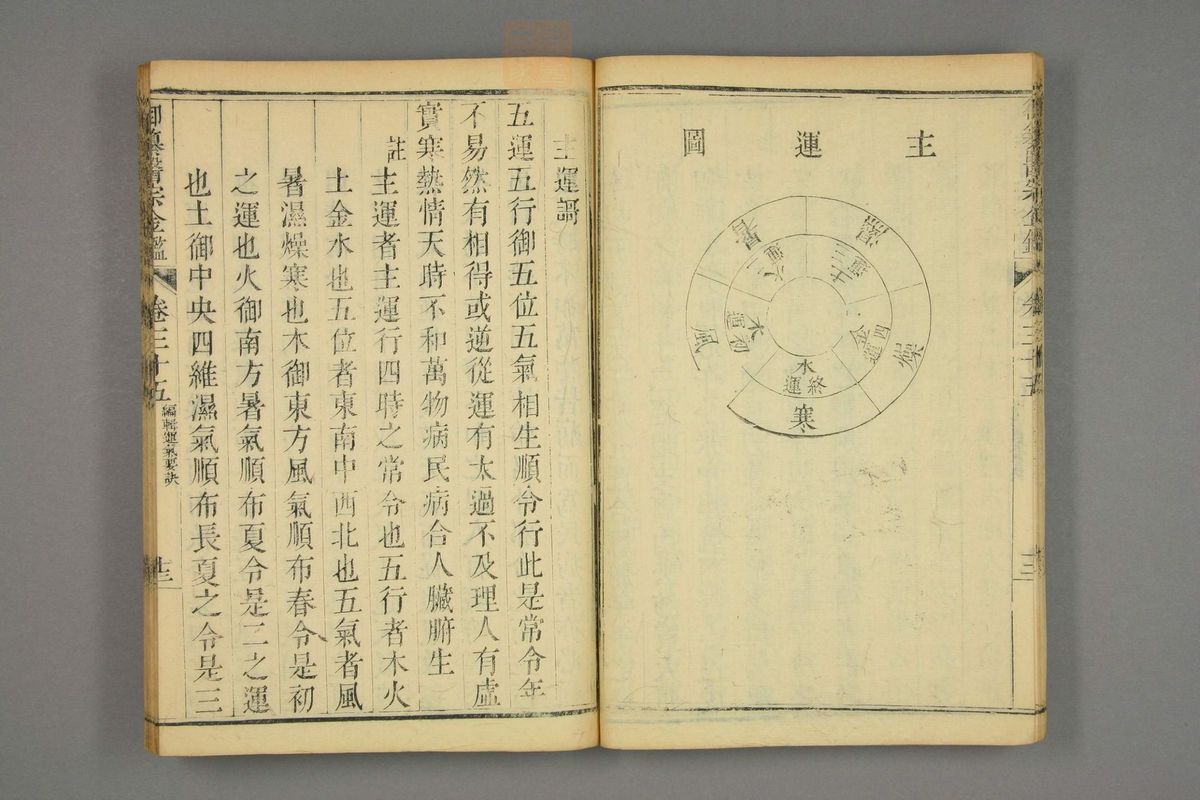 主運圖
暑
濕
二運火
土三運
風
初運木
金四運
燥
水
終運
寒
御纂醫宗金鑑
卷三十五
主運謌
五運五行御五位五氣相生順令行此是常令年
不易然有相得或逆從運有太過不及理人有虛
實寒熱情天時不和萬物病民病合人臟腑生
註
主運者主運行四時之常令也五行者木火
土金水也五位者東南中西北也五氣者風
暑濕燥寒也木御東方風氣順布春令是初
之運也火御南方暑氣順布夏令是二之運
也土御中央四維濕氣順布長夏之令是三
御纂醫宗金鑑
卷三十五
編輯運氣要訣